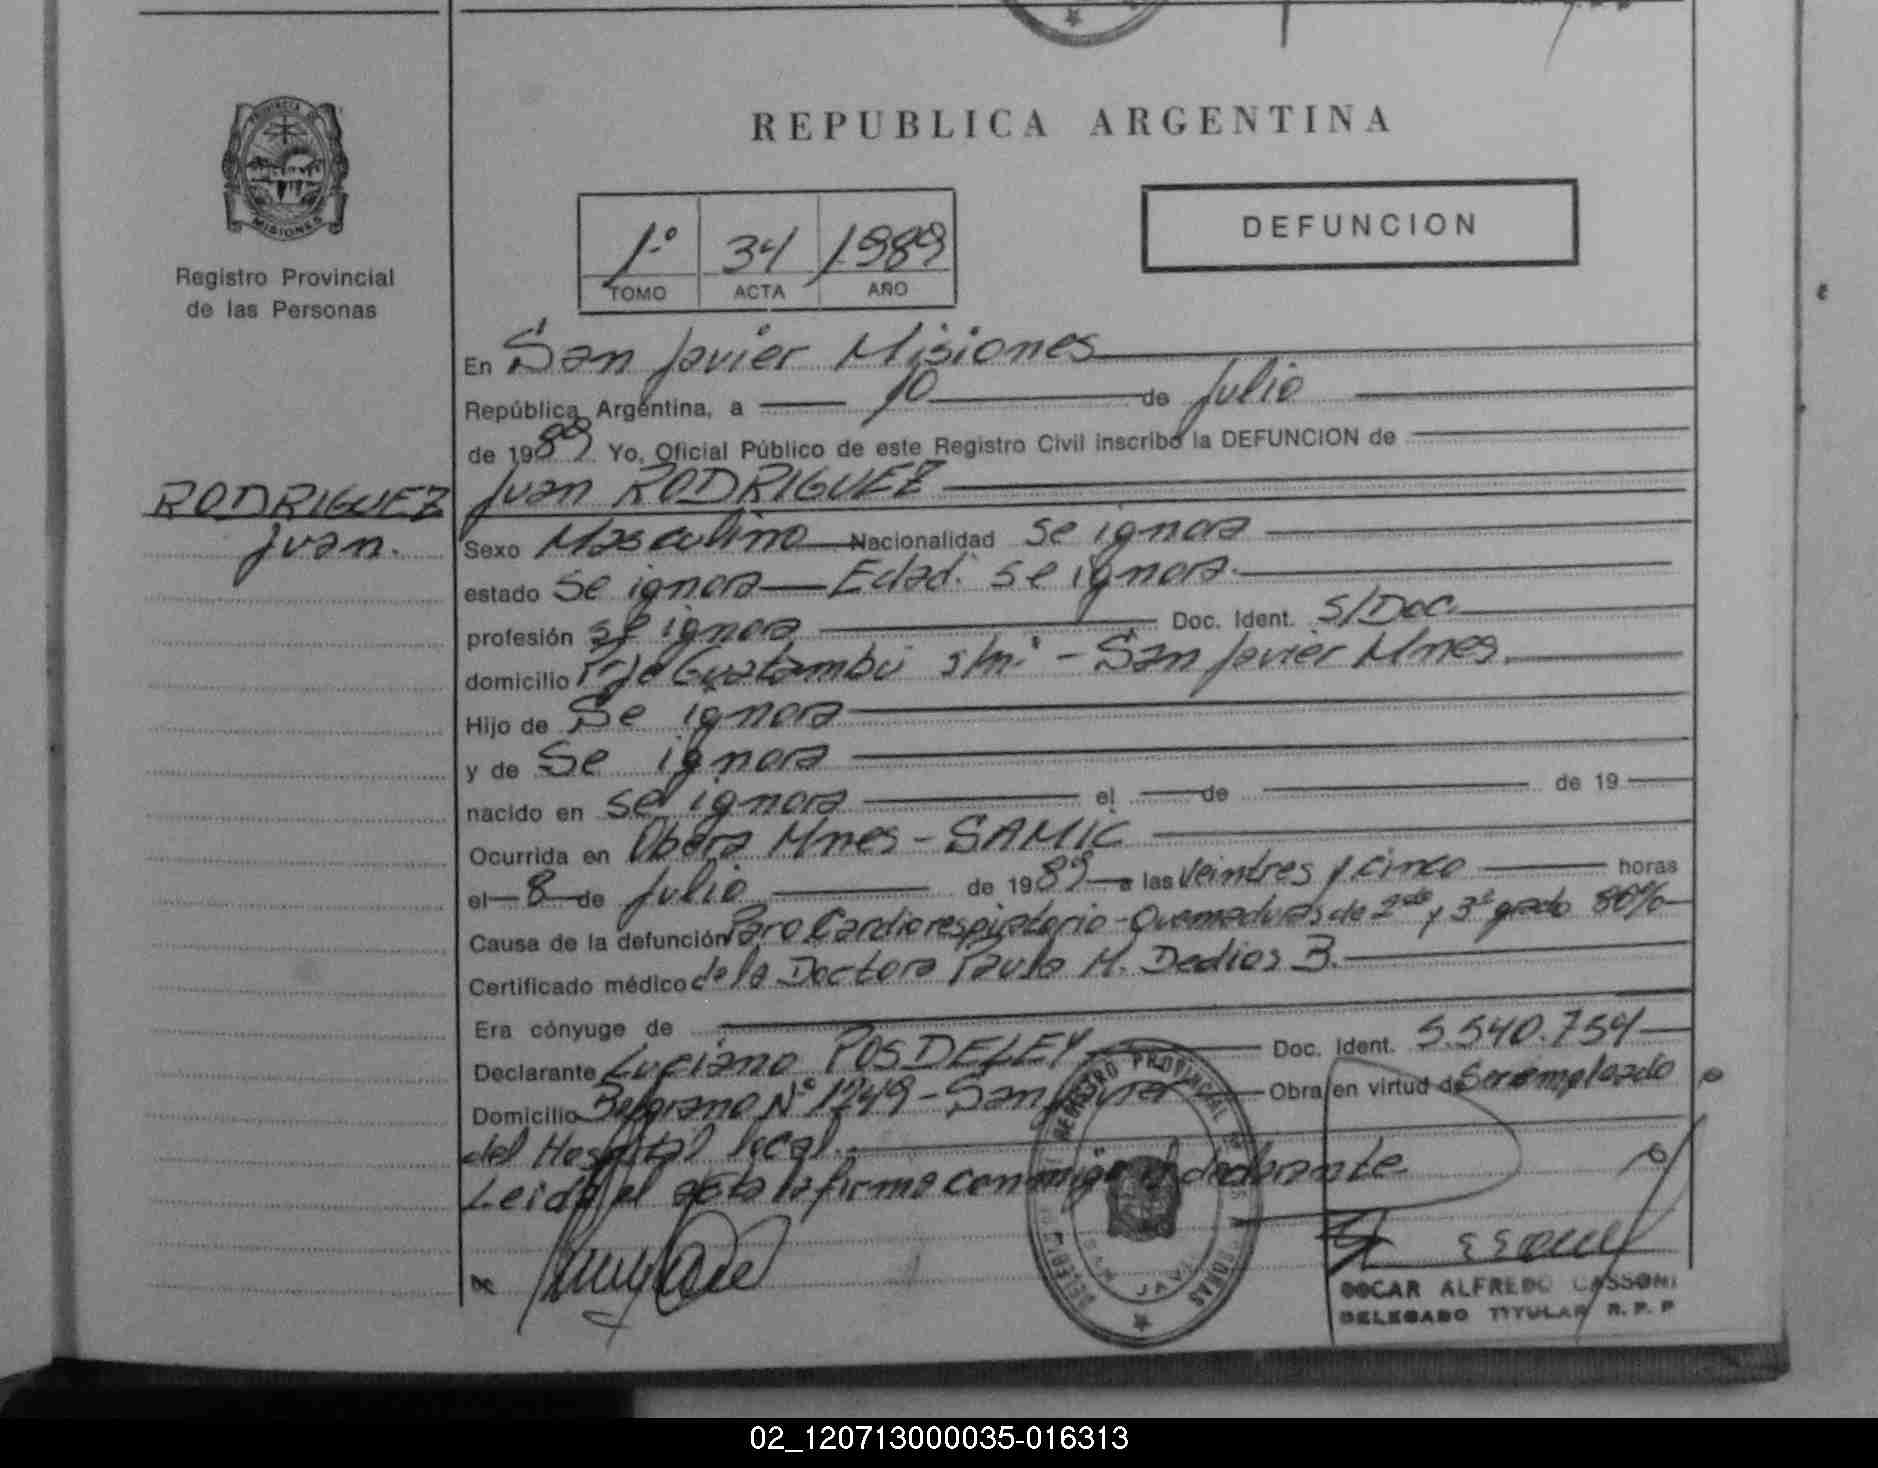 PROVINCIA DE
MISIONES
Registro Provincial
de las Personas
REPUBLICA ARGENTINA
1º 34 1989
TOMO ACTA AÑO
DEFUNCION
En San Javier Misiones
República Argentina, a 10 de Julio
de 1989 Yo, Oficial Público de este Registro Civil inscribo la DEFUNCION de
RODRIGUEZ
Juan.
Juan RODRIGUEZ
Sexo Masculino Nacionalidad se ignora
estado Se ignora Edad: se ignora.
profesión se ignora Doc. Ident. S/Doc.
domicilio Guatambú s/n: - San Javier Mnes.
Hijo de Se ignora
y de Se ignora
nacido en se ignora el de de 19
Ocurrida en Oberá Mnes - SAMIC
el 8 de Julio de 1989 a las Veintres y cinco horas
Causa de la defunción Paro Cardiorespiratorio - Quemaduras de 2do y 3º grado 80%
Certificado médico de la Doctora Paula M. Dedios B.
Era cónyuge de
Declarante Luciano POSDELEY Doc. Ident. 5.540.754
Domicilio Belgrano Nº 1249 - San Javier Obra en virtud de Ser empleado
del Hospital local.
Leida el acta la firma conmigo el declarante
REGISTRO PROVINCIAL DE LAS PERSONAS
OSCAR ALFREDO CASSONI
DELEGADO TITULAR R. P. P
02_120713000035-016313